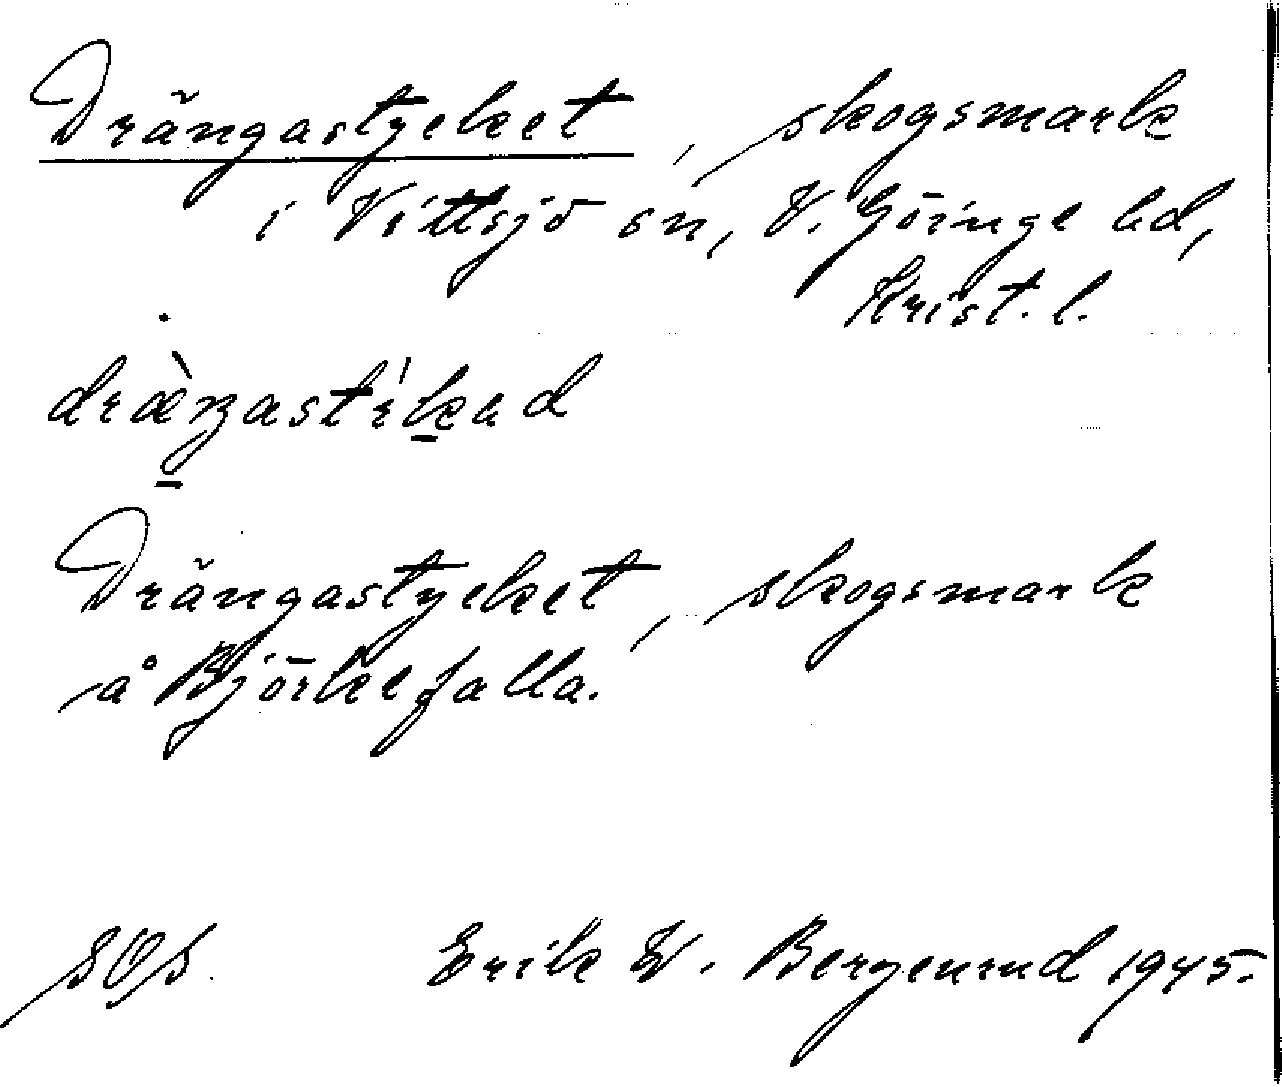 Drängastycket, skogsmark
i Vittsjö sn, V. Göinge hd,
Krist. l.
Drängastycket, skogsmark
å Björkefalla.
SOS. Erik W. Bergenrud 1945.